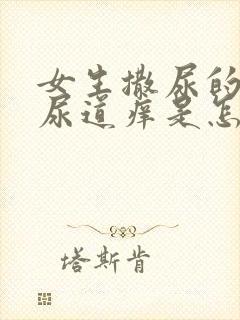 女生撒尿的
尿道痒是怎
塔斯肯